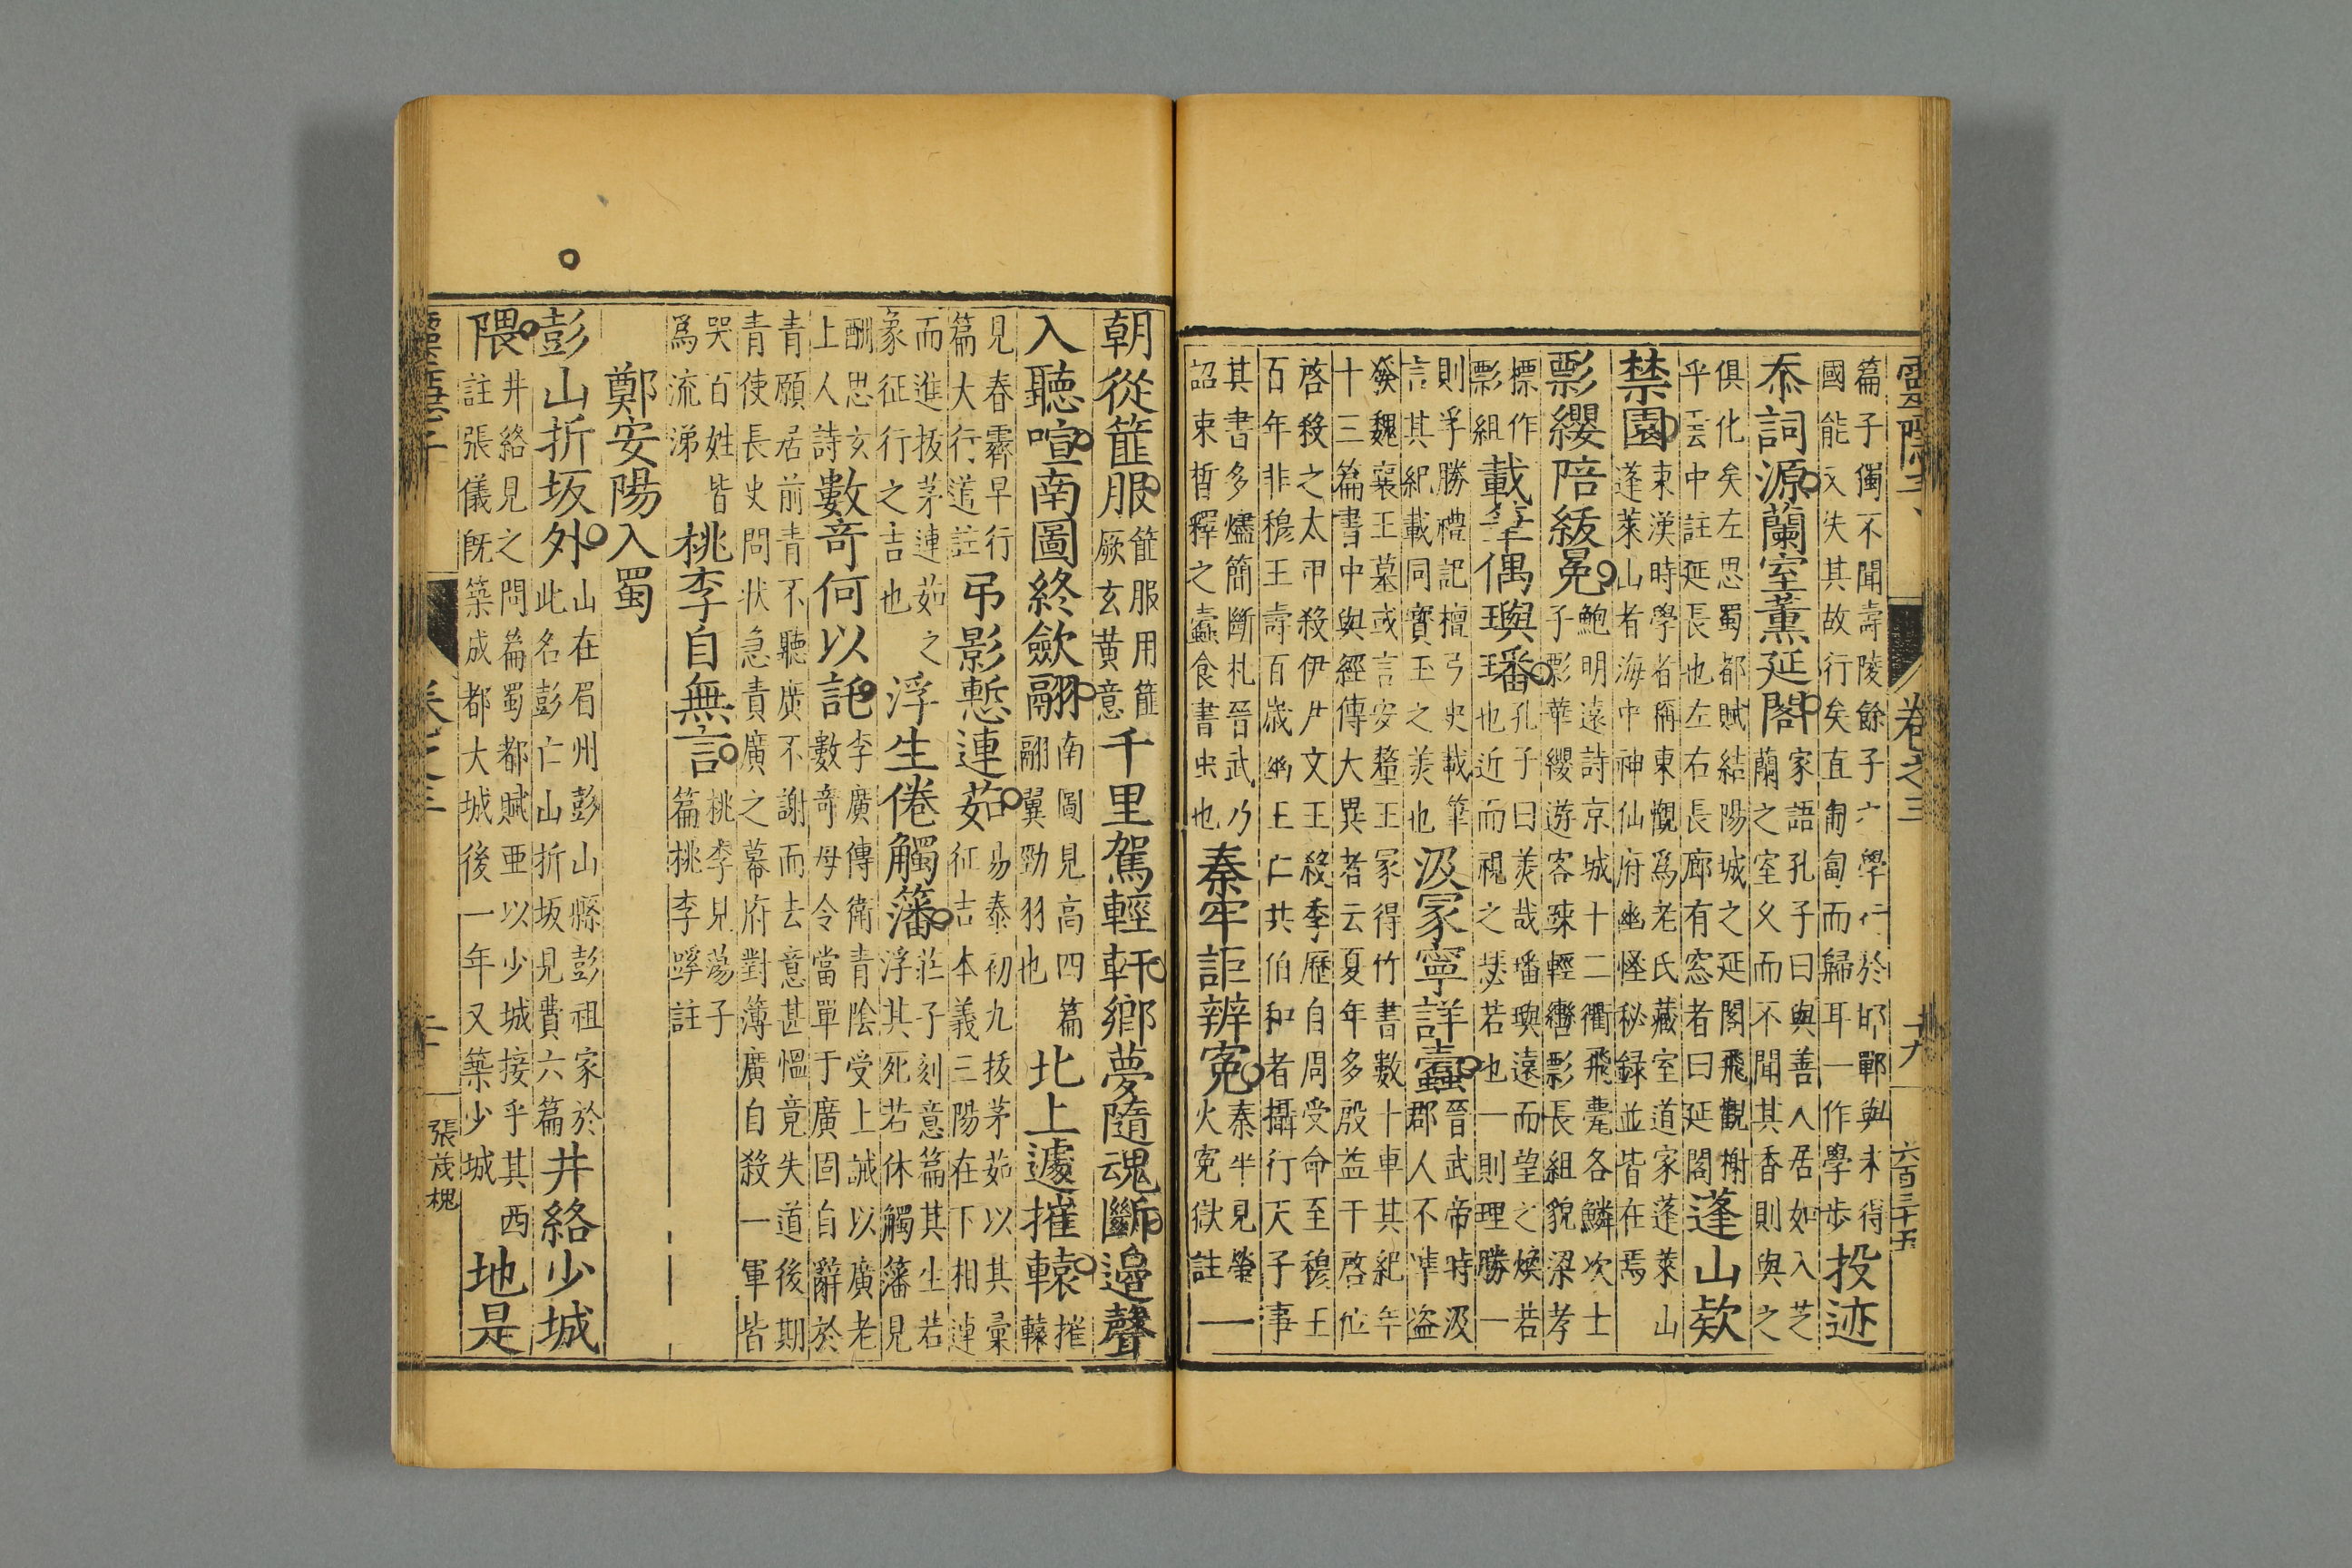 靈隱子 卷之三 十九 六百三十五
篇子獨不聞壽陵餘子六學行於邯鄲與未得
國能又失其故行矣直匍匐而歸耳一作學步
投迹
忝詞源蘭室薰延閣
家語孔子曰與善人居如入芝
蘭之室久而不聞其香則與之
俱化矣左思蜀都賦結陽城之延閣飛觀榭
乎雲中註延長也左右長廊有窓者曰延閣
蓬山欵
禁園
東漢時學者稱東觀爲老氏藏室道家蓬萊山
蓬萊山者海中神仙府幽怪秘録並皆在焉
彯纓陪紱冕
鮑明遠詩京城十二衢飛甍各鱗次士
子彯華纓遊客竦輕轡彯長組貌梁孝
標作
彯組
載筆偶璵璠
孔子曰美哉璠璵遠而望之煥若
玉也近而視之瑟若也一則理勝一
則孚勝禮記檀弓史載筆
言其紀載同寳玉之美也
汲冢寧詳蠹
晉武帝時汲
郡人不準盗
發魏襄王墓或言安釐王冢得竹書數十車其紀年
十三篇書中與經傳大異者云夏年多殷益干啓位
啓殺之太甲殺伊尹文王殺季歷自周受命至穆王
百年非穆王壽百歲幽王仁共伯和者攝行天子事
其書多燼簡斷札晉武乃
詔束晳釋之蠹食書虫也
秦牢詎辨寃
秦牢見螢
火寃獄註
一
朝從篚服
篚服用篚
厥玄黃意
千里駕輕軒鄉夢隨魂斷邉聲
入聽喧南圖終歛翮
南圖見高四篇
翮翼勁羽也
北上遽摧轅
摧
轅
見春霽早行
篇大行道註
弔影慙連茹
易泰初九拔茅茹以其彙
征吉本義三陽在下相連
而進拔茅連茹之
象征行之吉也
浮生倦觸籓
莊子刻意篇其生若
浮其死若休觸籓見
酬思玄
上人詩
數奇何以託
李廣傳衛青陰受上誡以廣老
數奇毋令當單于廣固自辭於
青願居前青不聽廣不謝而去意甚慍竟失道後期
青使長史問狀急責廣之幕府對簿廣自殺一軍皆
哭百姓皆
爲流涕
桃李自無言
桃李見蕩子
篇桃李蹊註
鄭安陽入蜀
彭山折坂外
山在眉州彭山縣彭祖家於
此名彭亡山折坂見費六篇
井絡少城
隈
井絡見之問篇蜀都賦亞以少城接乎其西
註張儀旣築成都大城後一年又築少城
地是
張茂槐